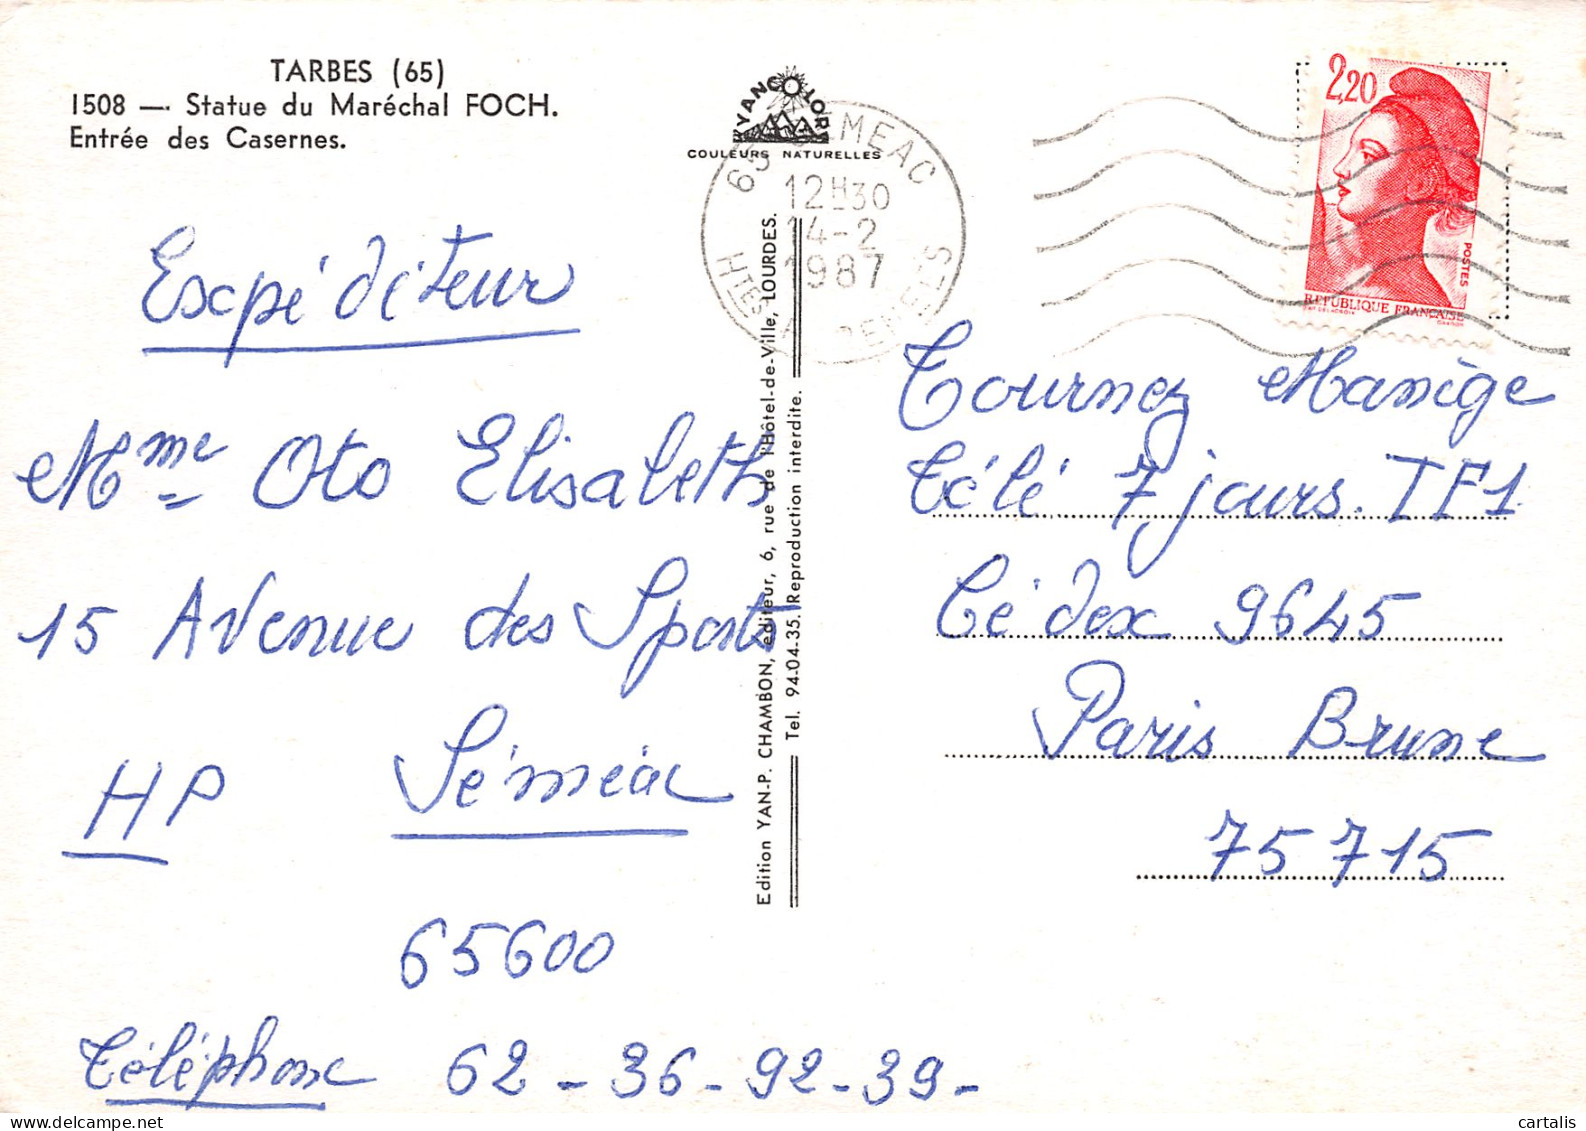 TARBES (65)
1508 — Statue du Maréchal FOCH.
Entrée des Casernes.
YANCOLOR
COULEURS NATURELLES
65 SEMEAC
12H30
14-2
1987
HTES PYRENEES
2,20
POSTES
REPUBLIQUE FRANÇAISE
Expéditeur
Mme Oto Elisabeth
15 Avenue des Sports
HP Séméac
65600
Téléphone 62-36-92-39-
Edition YAN-P. CHAMBON, éditeur, 6, rue de l'Hôtel-de-Ville, LOURDES.
Tel. 94-04-35. Reproduction interdite.
Tournez Manège
Télé 7 jours. TF1
Cédex 9645
Paris Brune
75715
cartalis